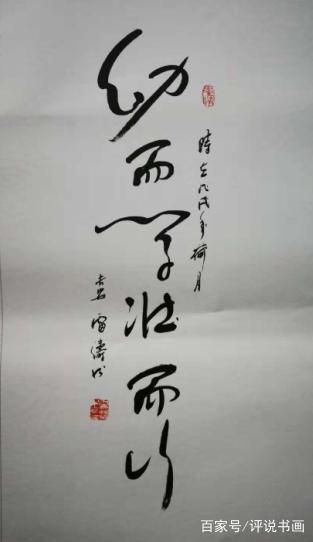 幼而学壮而行
時在戊戌年荷月
濤书
百家号/评说书画